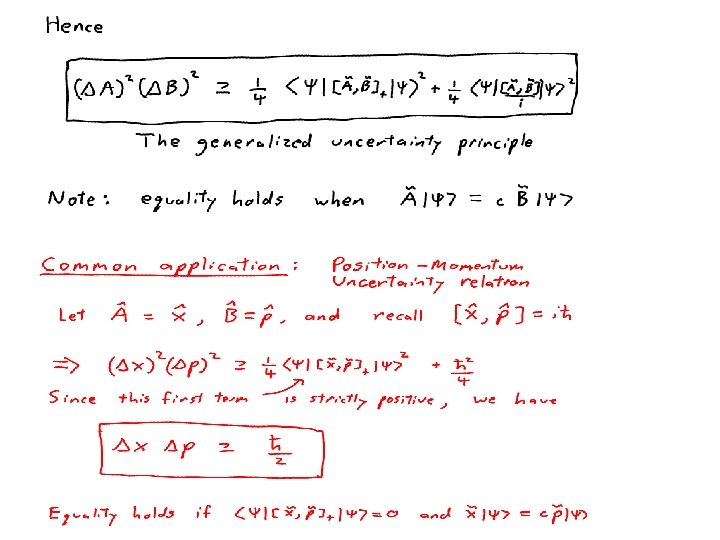 Hence
(ΔA)²(ΔB)² ≥ ¼ <Ψ|[Ǎ,B̌]₊|Ψ>² + ¼ <Ψ|[Ǎ,B̌]/i|Ψ>²
The generalized uncertainty principle
Note: equality holds when Ǎ|Ψ> = c B̌|Ψ>
Common application: Position-Momentum
Uncertainty relation
Let Â = x̂, B̂ = p̂, and recall [x̂, p̂] = iħ
=> (Δx)²(Δp)² ≥ ¼ <Ψ|[x̌,p̌]₊|Ψ>² + ħ²/4
Since this first term is strictly positive, we have
Δx Δp ≥ ħ/2
Equality holds if <Ψ|[x̌,p̌]₊|Ψ>=0 and x̌|Ψ> = cp̌|Ψ>